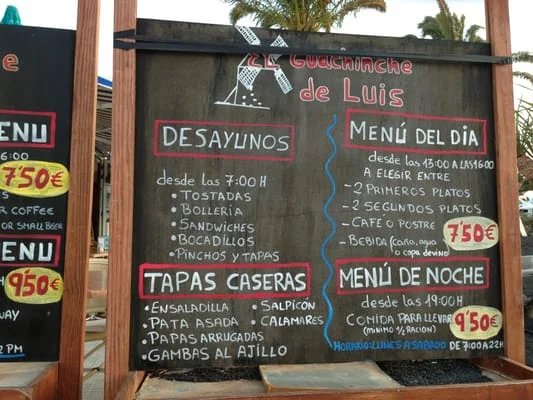 e
ENU
16:00
7'50€
R COFFEE
OR SMALL BEER
ENU
9'50€
WAY
2 PM
EL Guachinche
de Luis
DESAYUNOS
desde las 7:00 H
• TOSTADAS
• BOLLERÍA
• SANDWICHES
• BOCADILLOS
• PINCHOS y TAPAS
TAPAS CASERAS
• ENSALADILLA
• PATA ASADA
• PAPAS ARRUGADAS
• GAMBAS AL AJILLO
• SALPICÓN
• CALAMARES
MENÚ DEL DIA
desde las 13:00 A LAS 16:00
A ELEGIR ENTRE
- 2 PRIMEROS PLATOS
- 2 SEGUNDOS PLATOS
- CAFÉ O POSTRE
- BEBIDA (caña, agua
o copa de vino)
7'50€
MENÚ DE NOCHE
desde las 19:00H
COMIDA PARA LLEVAR
(MINIMO 1/2 RACION)
9'50€
HORARIO: LUNES A SABADO DE 7:00 A 22H